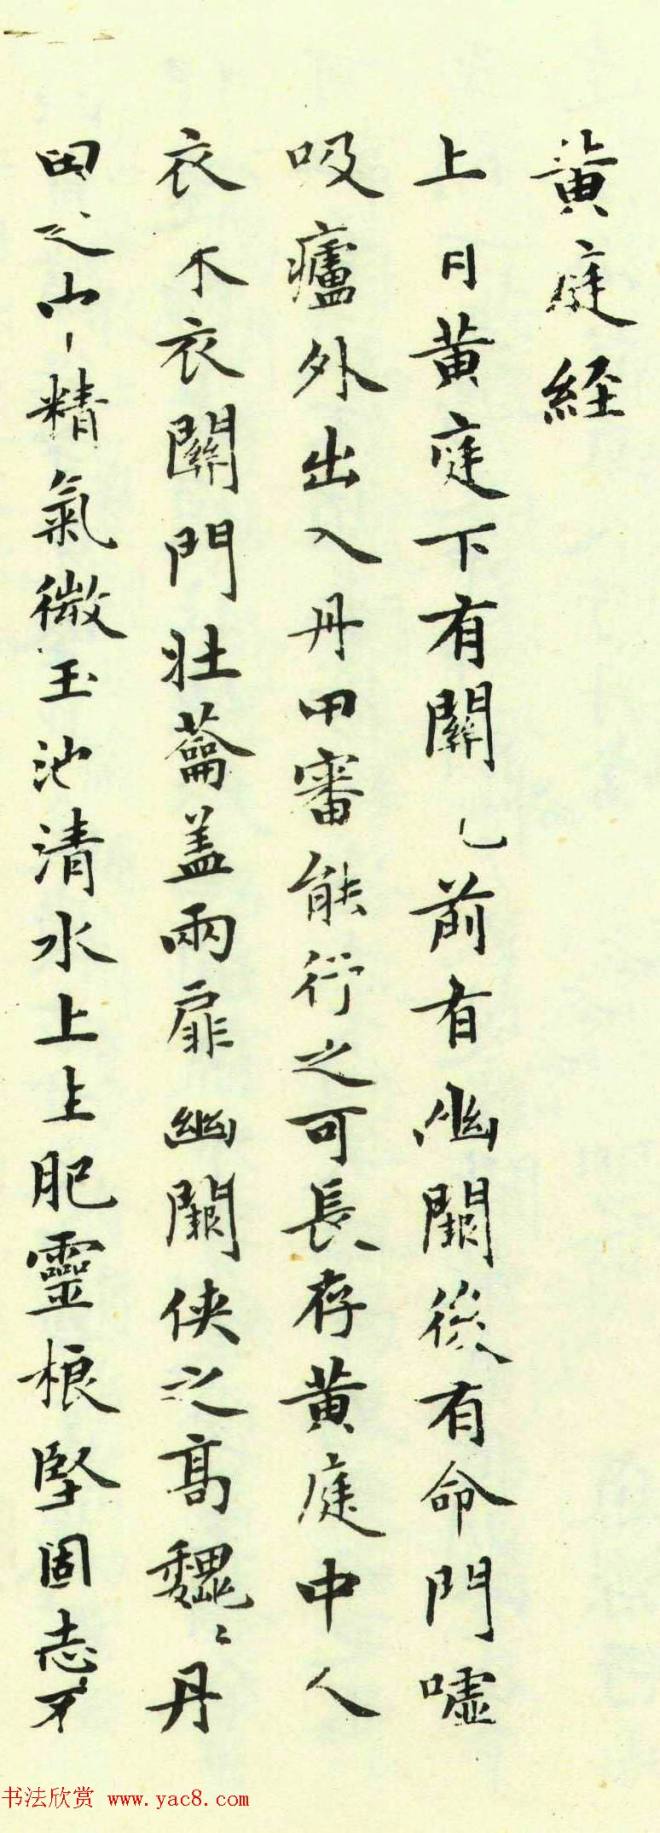 黄庭経
上黄庭下有關前有幽闕後有命門嘘
吸廬外出入丹田審能行之可長存黄庭中人
衣衣關門壯蘥盖兩扉幽闕侠之高魏〻丹
田之精氣微玉池清水上肥靈根堅固志不
书法欣赏 www.yac8.com